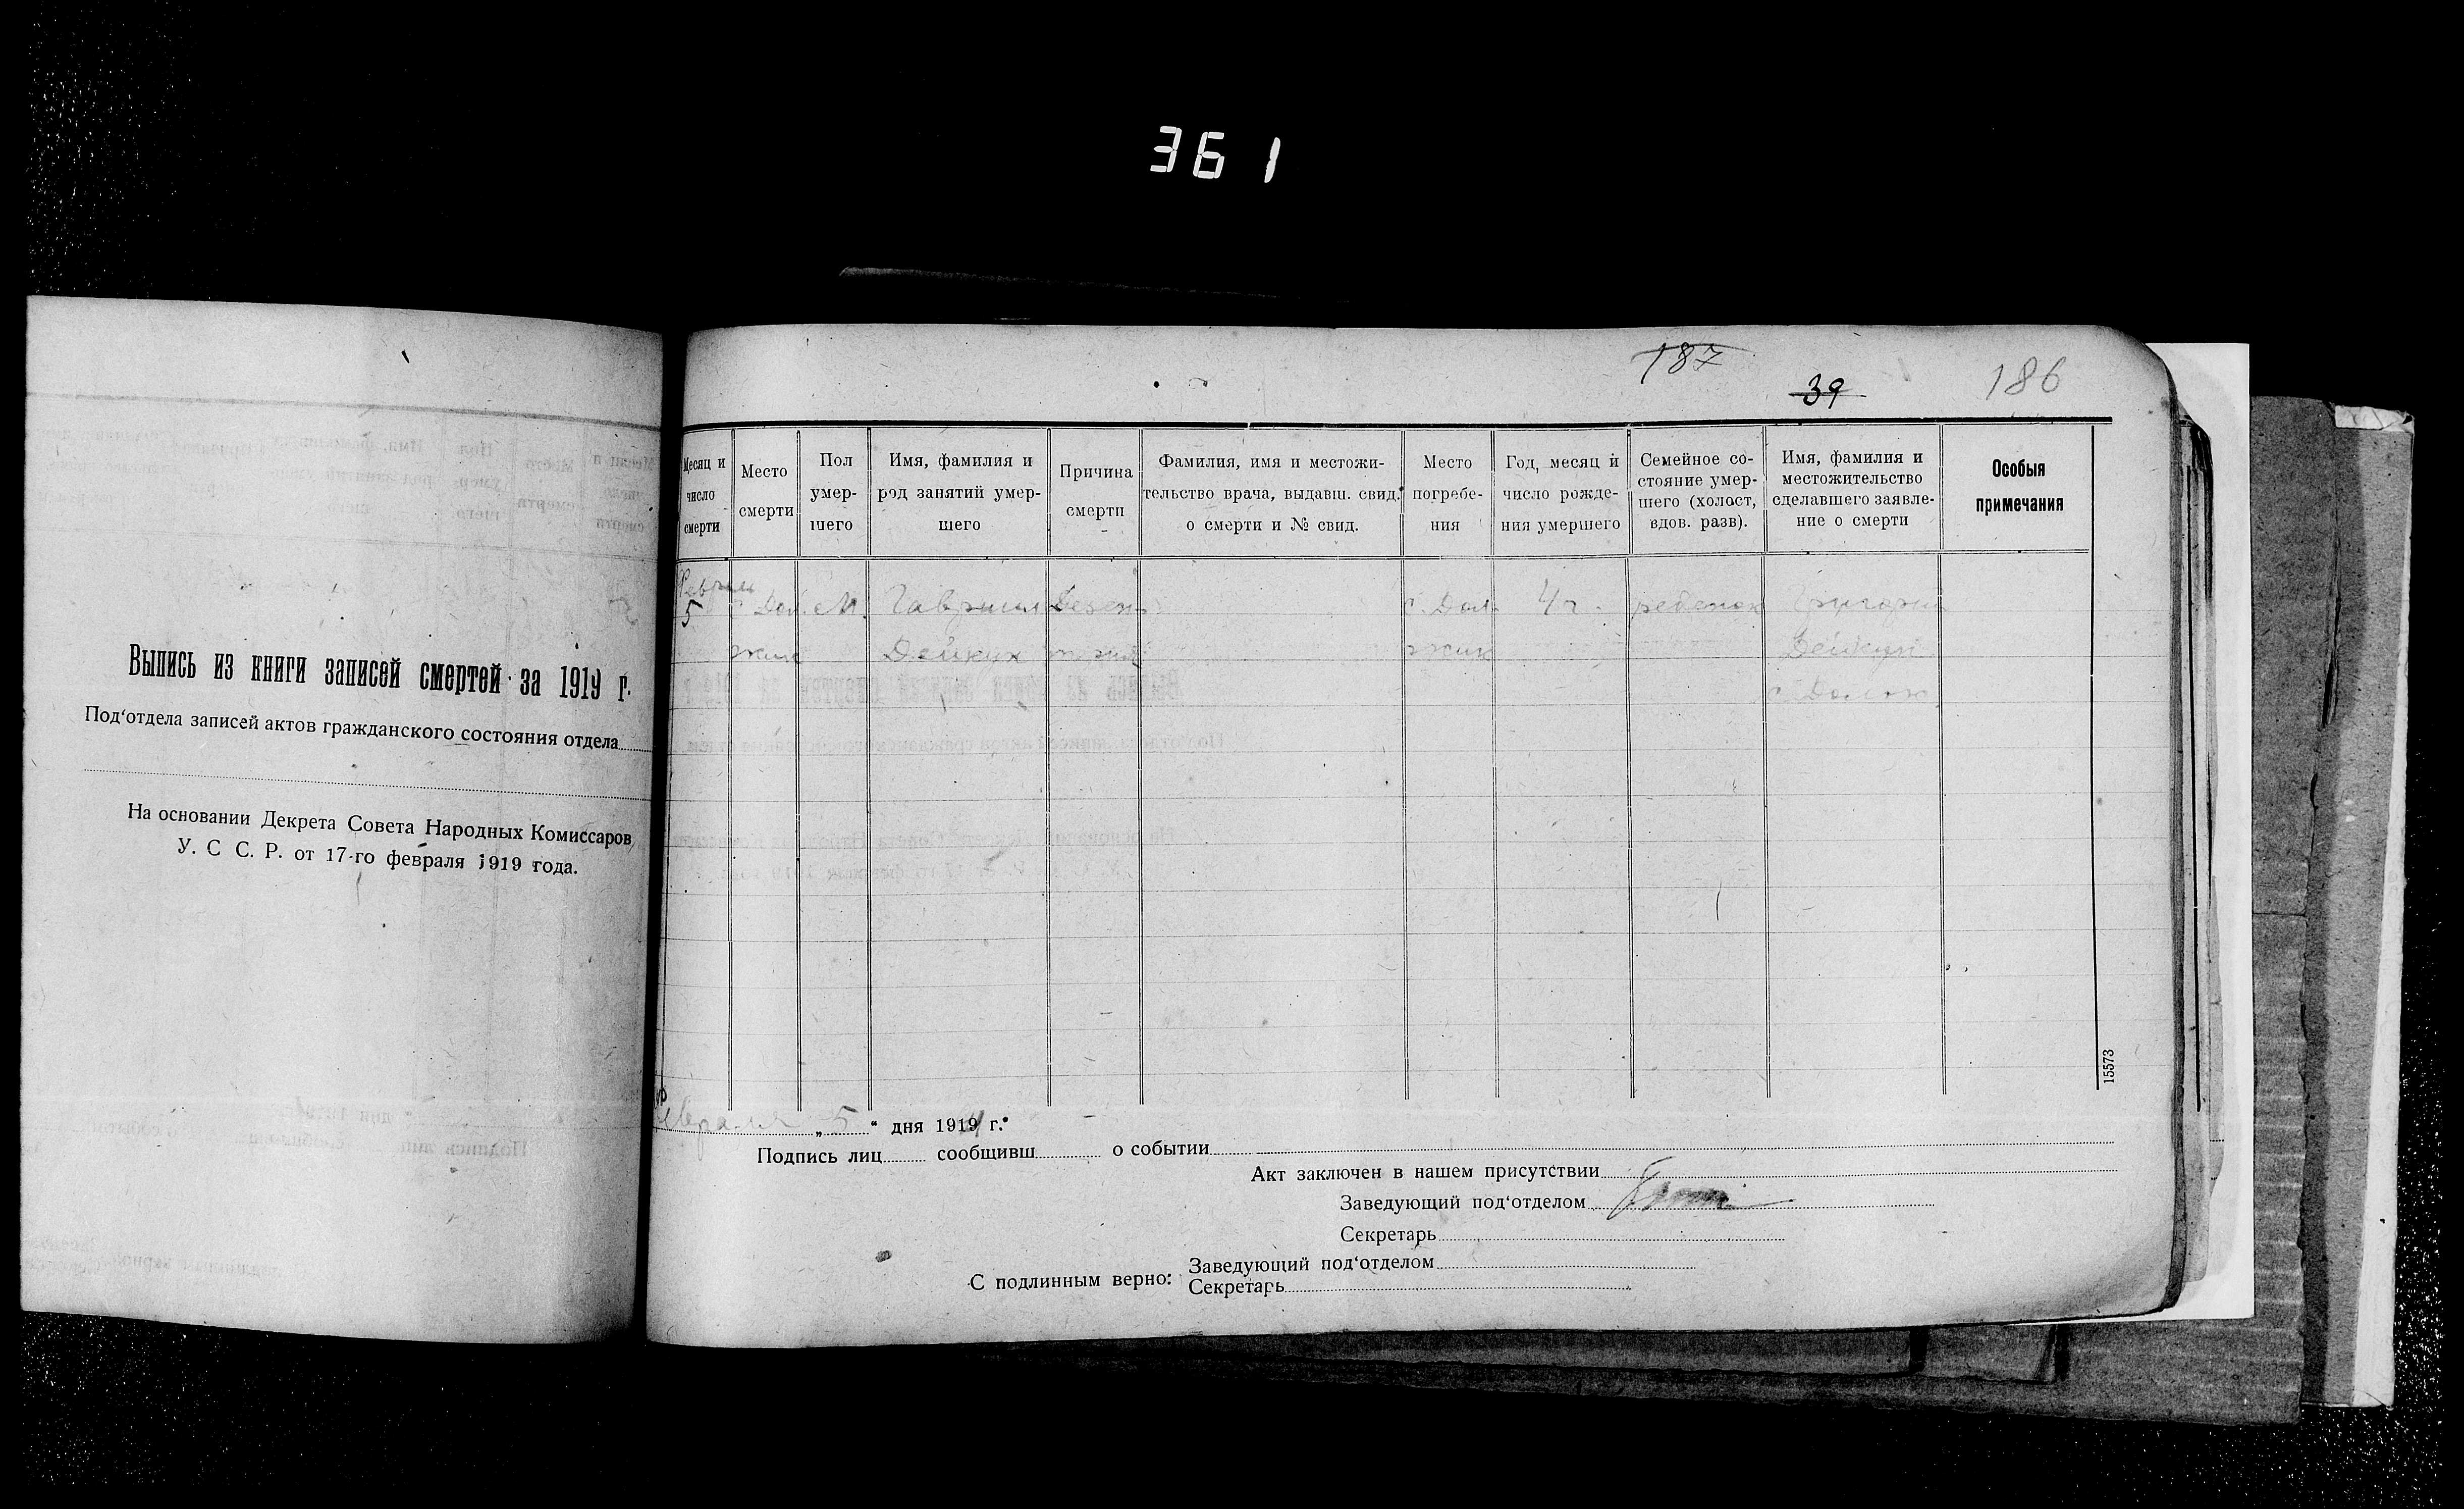 361
187
39
186
Выпись из книги записей смертей за 1919 г.
Под‘отдела записей актов гражданского состояния отдела
На основании Декрета Совета Народных Комиссаров
У. С С. Р. от 17-го февраля 1919 года.
Месяц и число смерти
Место смерти
Пол умер-шего
Имя, фамилия и род занятий умер-шего
Причина смерти
Фамилия, имя и местожи-тельство врача, выдавш. свид. о смерти и № свид.
Место погребе-ния
Год, месяц и число рожде-ния умершего
Семейное со-стояние умер-шего (холост, вдов. разв).
Имя, фамилия и местожительство сделавшего заявле-ние о смерти
Особыя примечания
5 с. Дол. М. Гавриил с. Дол 4 г. ребенок Григорий
жик Дейкун жик Дейкун
с. Долж
Февраля „ 5 “ дня 1919 г.
Подпись лиц сообщивш о событии
Акт заключен в нашем присутствии
Заведующий под‘отделом
Секретарь
С подлинным верно: Заведующий под‘отделом
Секретарь
15573